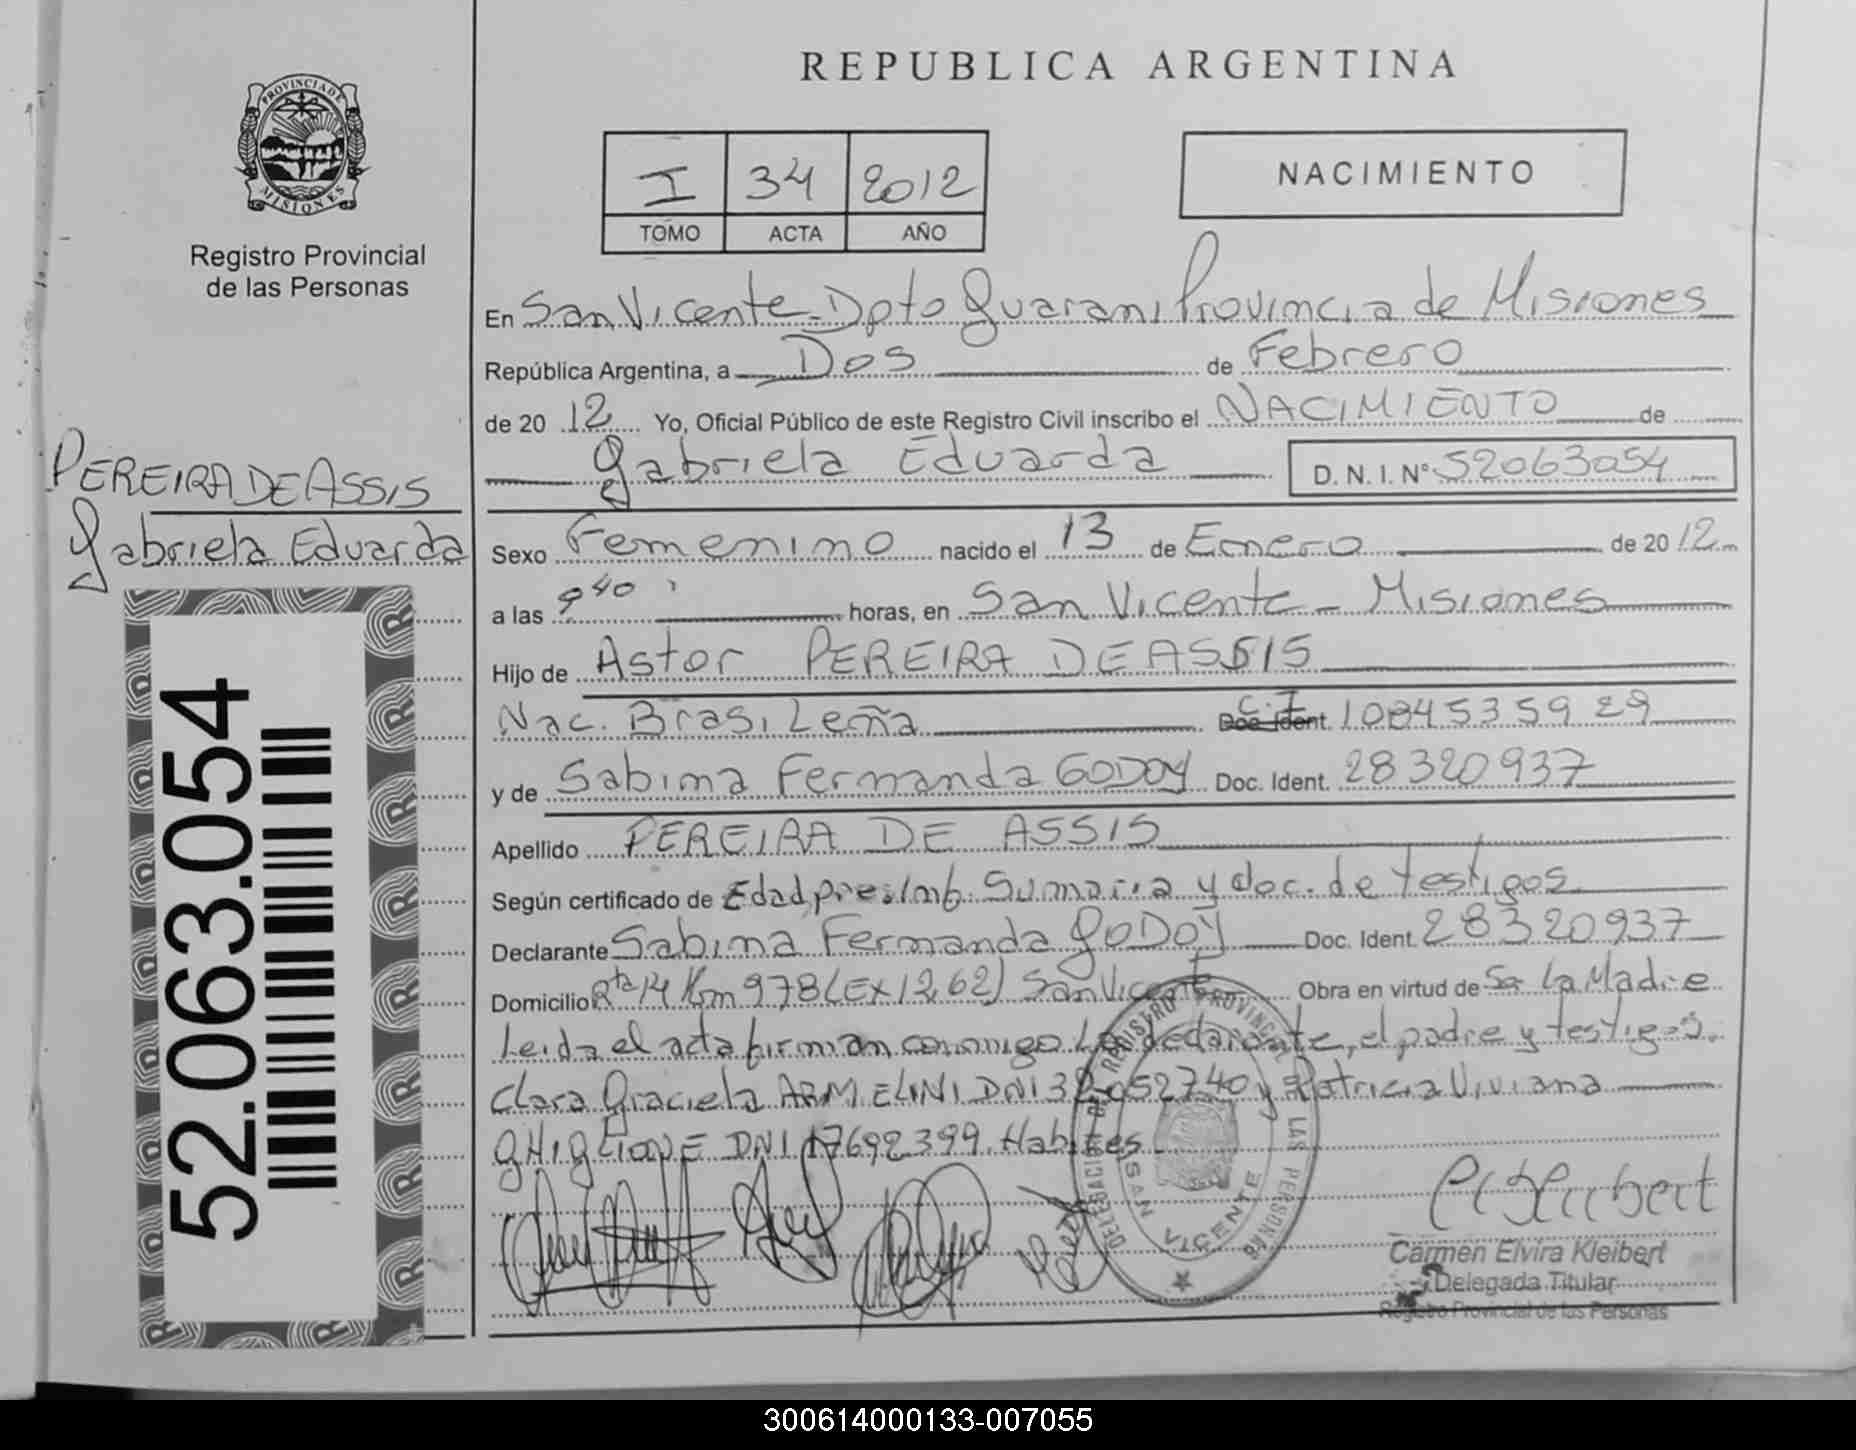 REPUBLICA ARGENTINA
PROVINCIA DE MISIONES
Registro Provincial
de las Personas
I 34 2012
TOMO ACTA AÑO
NACIMIENTO
En San Vicente - Dpto Guarani Provincia de Misiones
República Argentina, a Dos de Febrero
de 20 12 Yo, Oficial Público de este Registro Civil inscribo el NACIMIENTO de
Gabriela Eduarda D. N. I. Nº 52063054
PEREIRA DE ASSIS
Gabriela Eduarda
Sexo Femenino nacido el 13 de Enero de 20 12
a las 9 40 horas, en San Vicente - Misiones
Hijo de Astor PEREIRA DE ASSIS
Nac. Brasileña C.I. Doc. Ident. 1084535929
y de Sabina Fernanda GODOY Doc. Ident. 28320937
Apellido PEREIRA DE ASSIS
Según certificado de Edad presimb. Sumaria y doc. de testigos
Declarante Sabina Fernanda GODOY Doc. Ident. 28320937
Domicilio Rta 14 Km 978 (Ex 1262) San Vicente Obra en virtud de Sr La Madre
Leida el acta firman conmigo La declarante, el padre y testigos.
Clara Graciela ARMELINI DNI 32052740 y Patricia Viviana
GHIGLIONE DNI 17692399. Habiles
52.063.054
DELEGACION DE REGISTRO PROVINCIAL DE LAS PERSONAS
SAN VICENTE
Carmen Elvira Kleibert
Delegada Titular
Registro Provincial de las Personas
300614000133-007055